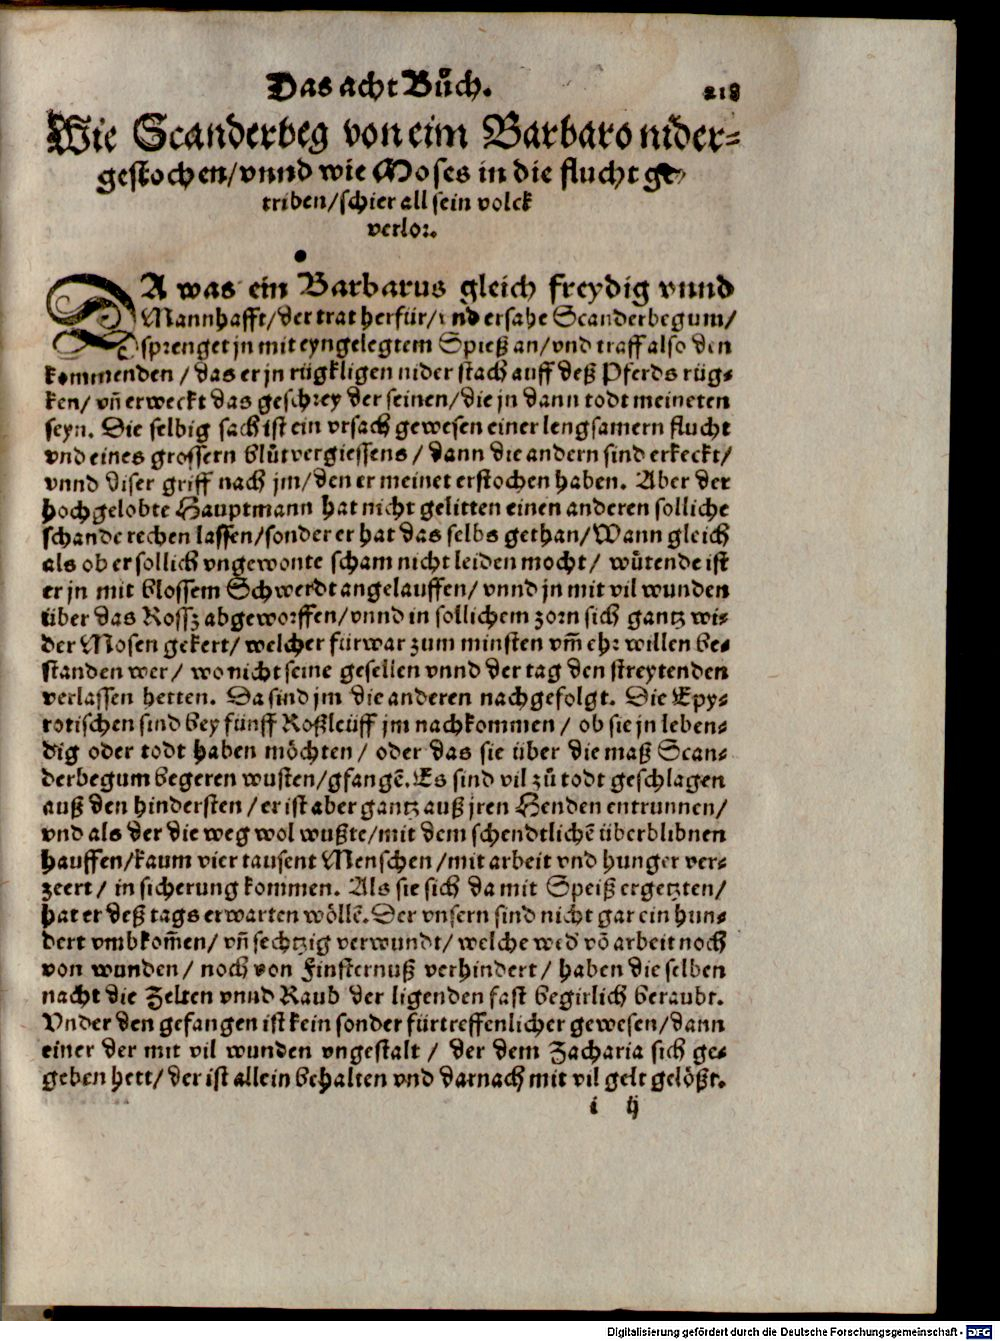 Das acht Bůch. 218
Wie Scanderbeg von eim Barbaro nider-
gestochen/vnnd wie Moses in die flucht ge-
triben/schier all sein volck
verlor.
DA was ein Barbarus gleich freydig vnnd
Mannhafft/der trat herfür/vnd ersahe Scanderbegum/
sprenget jn mit eyngelegtem Spieß an/vnd traff also den
kommenden / das er jn rügkligen nider stach auff deß Pferds rüg-
ken/ vñ erweckt das geschrey der seinen/die jn dann todt meineten
seyn. Die selbig sach ist ein vrsach gewesen einer lengsamern flucht
vnd eines grossern blůtvergiessens / dann die andern sind erkeckt/
vnnd diser griff nach jm/den er meinet erstochen haben. Aber der
hochgelobte Hauptmann hat nicht gelitten einen anderen solliche
schande rechen lassen/sonder er hat das selbs gethan/Wann gleich
als ob er sollich vngewonte scham nicht leiden mocht / wůtende ist
er jn mit blossem Schwerdt angelauffen/ vnnd jn mit vil wunden
über das Rossz abgeworffen/vnnd in sollichem zorn sich gantz wi-
der Mosen gekert/ welcher fürwar zum minsten vm̃ ehr willen be-
standen wer / wo nicht seine gesellen vnnd der tag den streytenden
verlassen hetten. Da sind jm die anderen nachgefolgt. Die Epy-
rotischen sind bey fünff Roßleüff jm nachkommen / ob sie jn leben-
dig oder todt haben möchten / oder das sie über die maß Scan-
derbegum begeren wusten/gfangẽ. Es sind vil zů todt geschlagen
auß den hindersten / er ist aber gantz auß jren Henden entrunnen/
vnd als der die weg wol wußte/mit dem schendtlichẽ überblibnen
hauffen/kaum vier tausent Menschen /mit arbeit vnd hunger ver-
zeert / in sicherung kommen. Als sie sich da mit Speiß ergetzten/
hat er deß tags erwarten wöllẽ. Der vnsern sind nicht gar ein hun-
dert vmbkom̃en/ vñ sechtzig verwundt/ welche wed' võ arbeit noch
von wunden / noch von Finsternuß verhindert / haben die selben
nacht die Zelten vnnd Raub der ligenden fast begirlich beraubt.
Vnder den gefangen ist kein sonder fürtreffenlicher gewesen/dann
einer der mit vil wunden vngestalt / der dem Zacharia sich ge-
geben hett/ der ist allein behalten vnd darnach mit vil gelt gelößt.
i ij
Digitalisierung gefördert durch die Deutsche Forschungsgemeinschaft - DFG